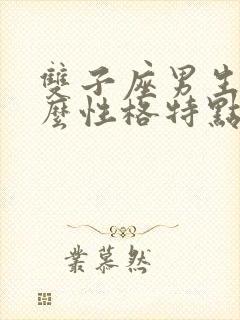 雙子座男生
麼性格特點
業慕然